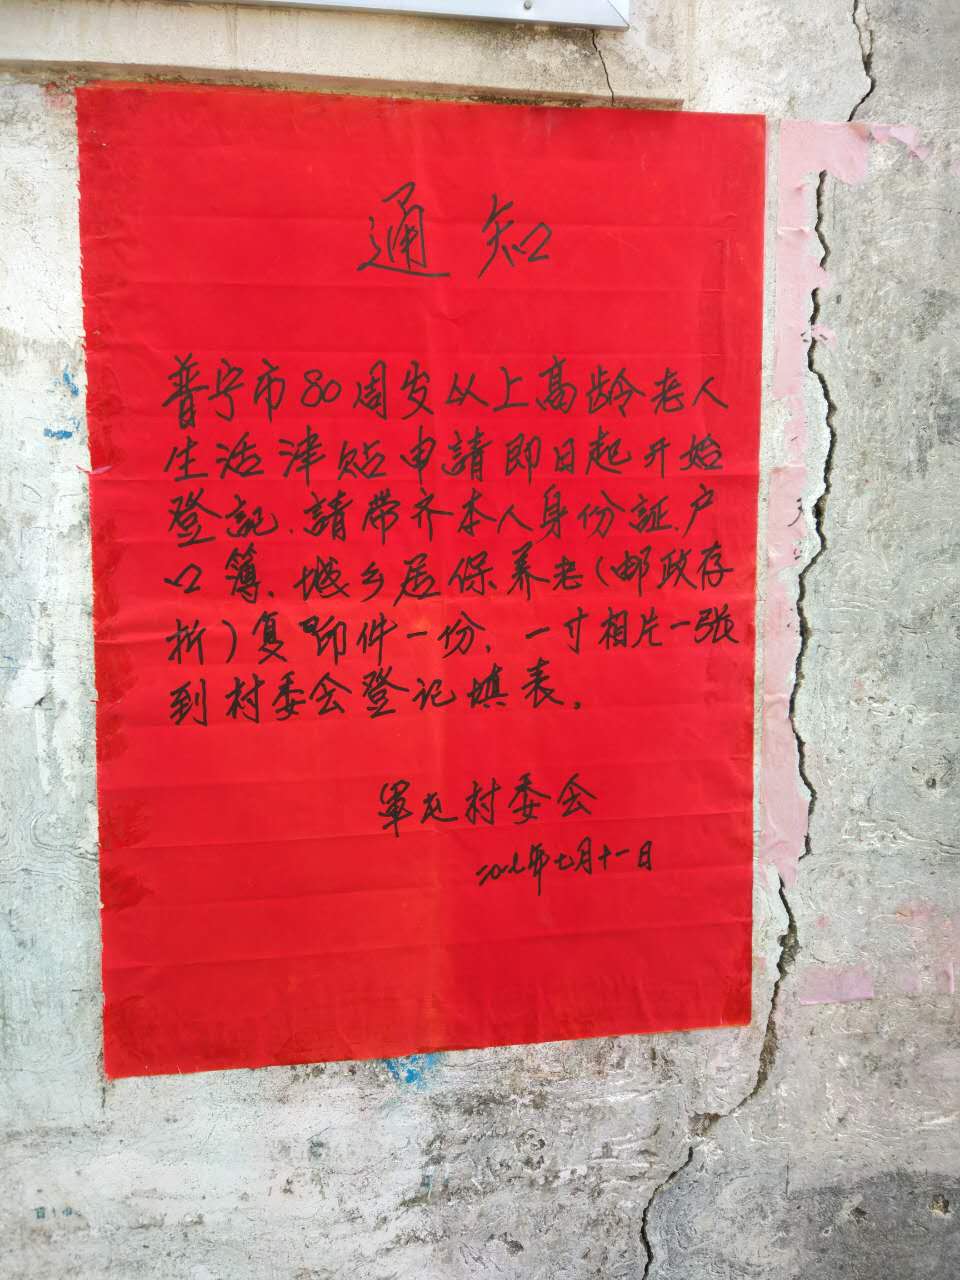 通知
普宁市80周岁以上高龄老人
生活津贴申請即日起开始
登記.請带齐本人身份証.户
口簿、城乡居保养老(邮政存
折)复印件一份,一寸相片一张
到村委会登记填表。
村委会
年七月十一日